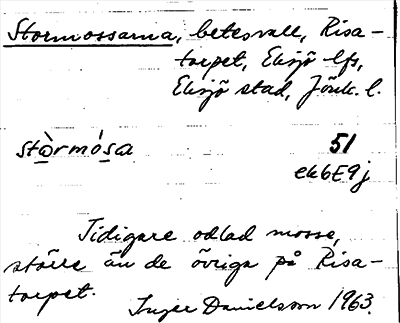 Stormossarna, betesvall, Risa-
torpet, Eksjö lfs,
Eksjö stad, Jönk. l.
stàrmósa 51
ek6E9j
Tidigare odlad mosse,
större än de övriga på Risa-
torpet.
Inger Danielsson 1963.